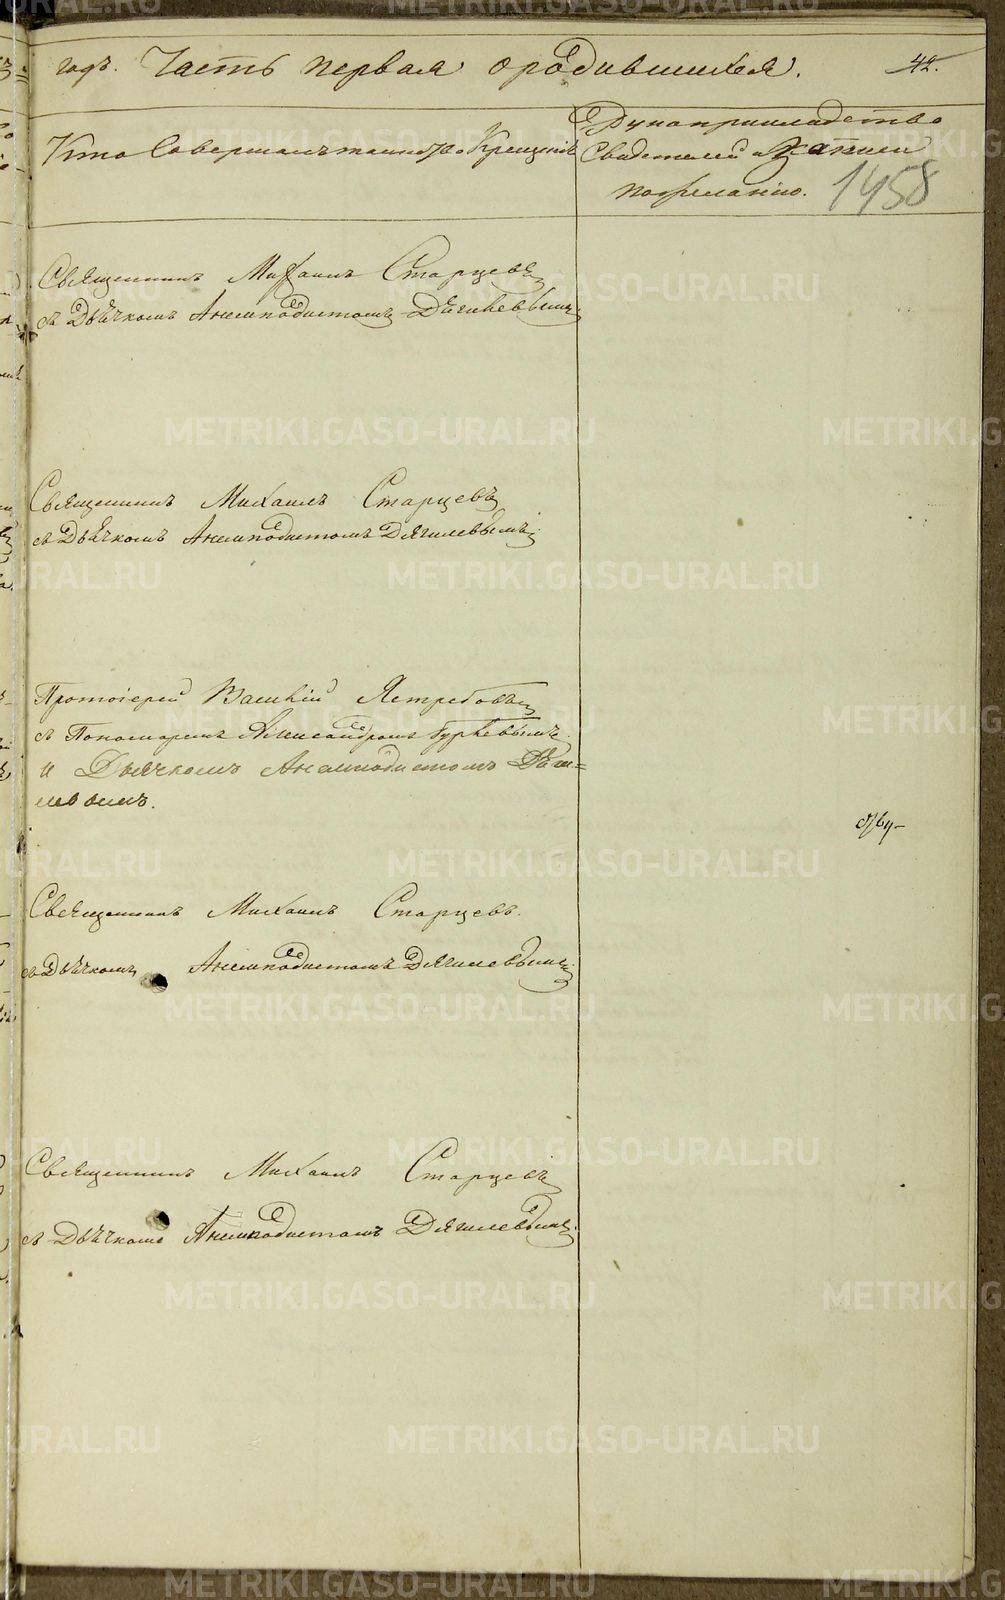 годъ. Часть первая о родившихся. 42.
Кто совершалъ таинство Крещенія
Рукоприкладство
свидетелей записи
по желанію. 1458
Священникъ Михаилъ Старцевъ
съ Дьячкомъ Анемподистомъ Дягилевымъ
Священникъ Михаилъ Старцевъ
съ Дьячкомъ Анемподистомъ Дягилевымъ.
Протоіерей Василій Ястребовъ
съ Пономаремъ Александромъ Бурневымъ
и Дьячкомъ Анемподистомъ Дяги=
левымъ.
Священникъ Михаилъ Старцевъ.
съ Дьячкомъ Анемподистомъ Дягилевымъ.
Священникъ Михаилъ Старцевъ
съ Дьячкомъ Анемподистомъ Дягилевымъ.
METRIKI.GASO-URAL.RU